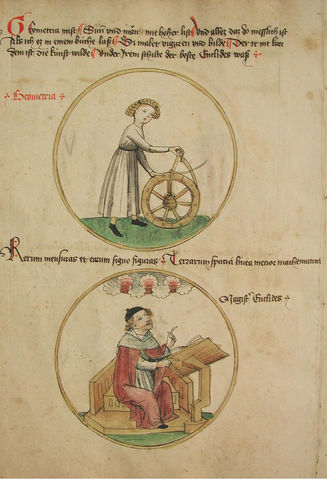 Geometria mist Sun und man mit hoher list Und alles daz do messlich ist
Als ich es in einem buche laß Si malet viguren und bilde Der ir mit
dem ist die kunst wilde Under irem schilte der beste Euclides waß
Geometria
Rerum mensuras et earum signo figuras Terrarum spatia linea metior mathematica
Magist Euclides